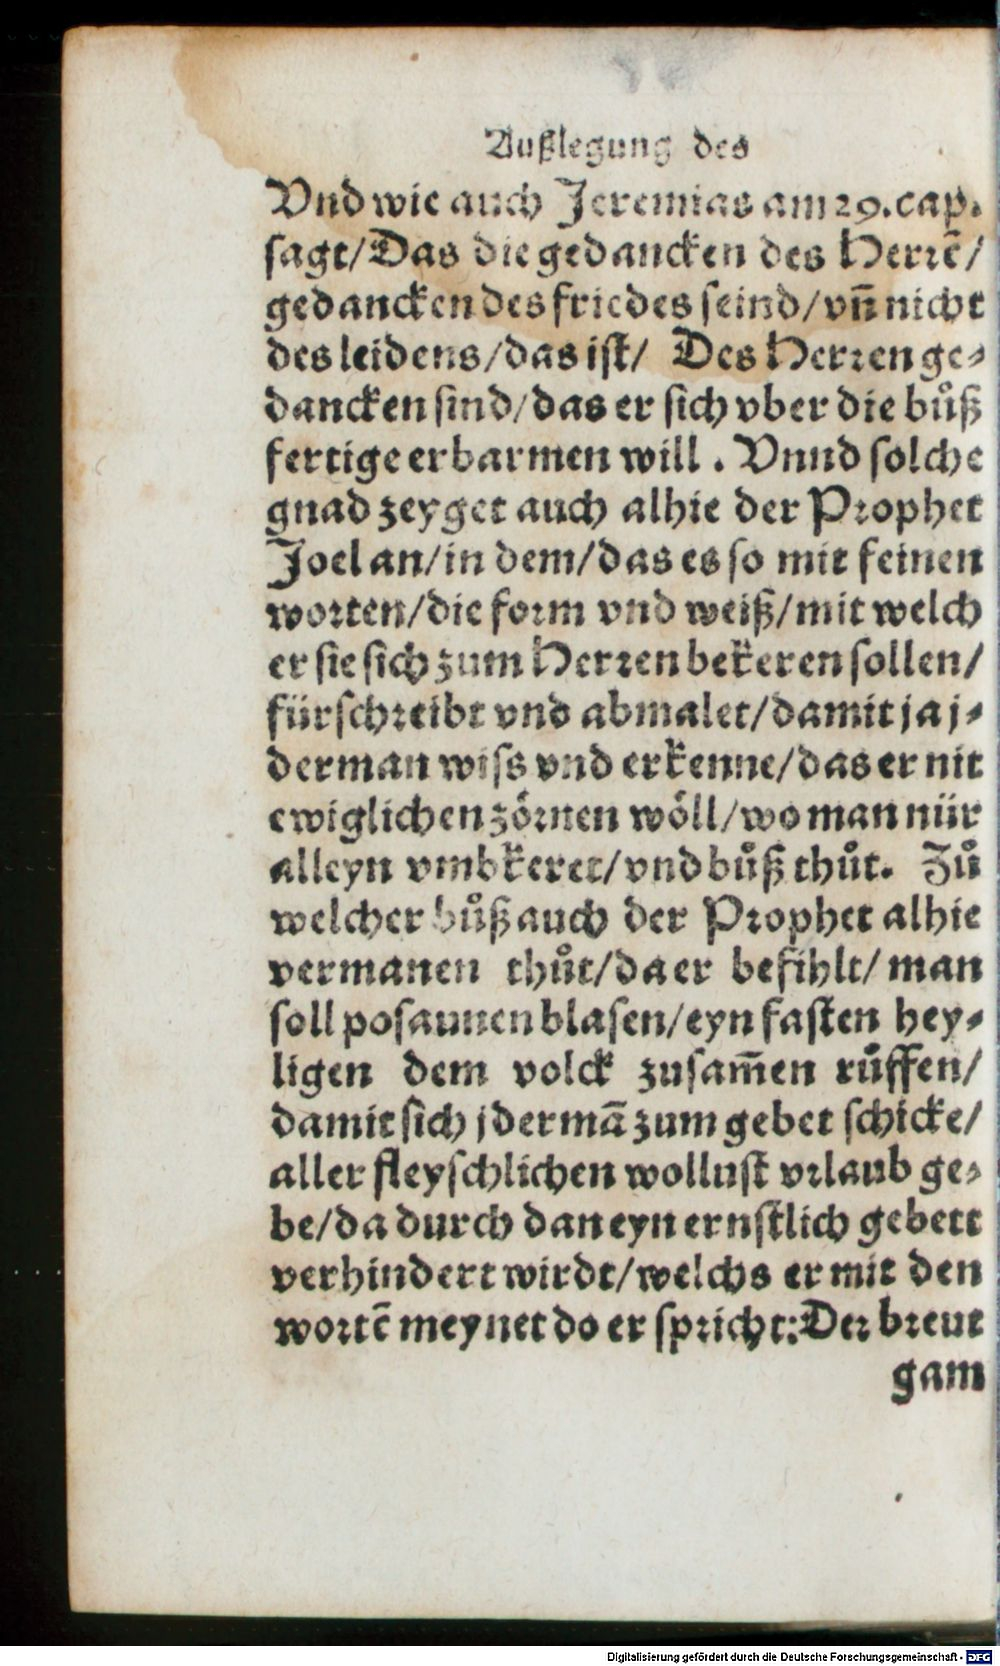 Außlegung des
Vnd wie auch Jeremias am 29. cap.
sagt/ Das die gedancken des Herrē/
gedancken des friedes seind/ vñ nicht
des leidens/ das ist/ Des Herren ge-
dancken sind/ das er sich vber die bůß
fertige erbarmen will. Vnnd solche
gnad zeyget auch alhie der Prophet
Joel an/ in dem/ das es so mit feinen
worten/ die form vnd weiß/ mit welch
er sie sich zum Herren bekeren sollen/
fürschreibt vnd abmalet/ damit ja j-
derman wiss vnd erkenne/ das er nit
ewiglichen zörnen wöll/ wo man nür
alleyn vmbkeret/ vnd bůß thůt. Zů
welcher bůß auch der Prophet alhie
vermanen thůt/ da er befihlt/ man
soll posaunen blasen/ eyn fasten hey-
ligen dem volck zusam̄en růffen/
damit sich jdermā zum gebet schicke/
aller fleyschlichen wollust vrlaub ge-
be/ da durch dan eyn ernstlich gebett
verhindert wirdt/ welchs er mit den
wortē meynet do er spricht: Der breut
gam
Digitalisierung gefördert durch die Deutsche Forschungsgemeinschaft - DFG